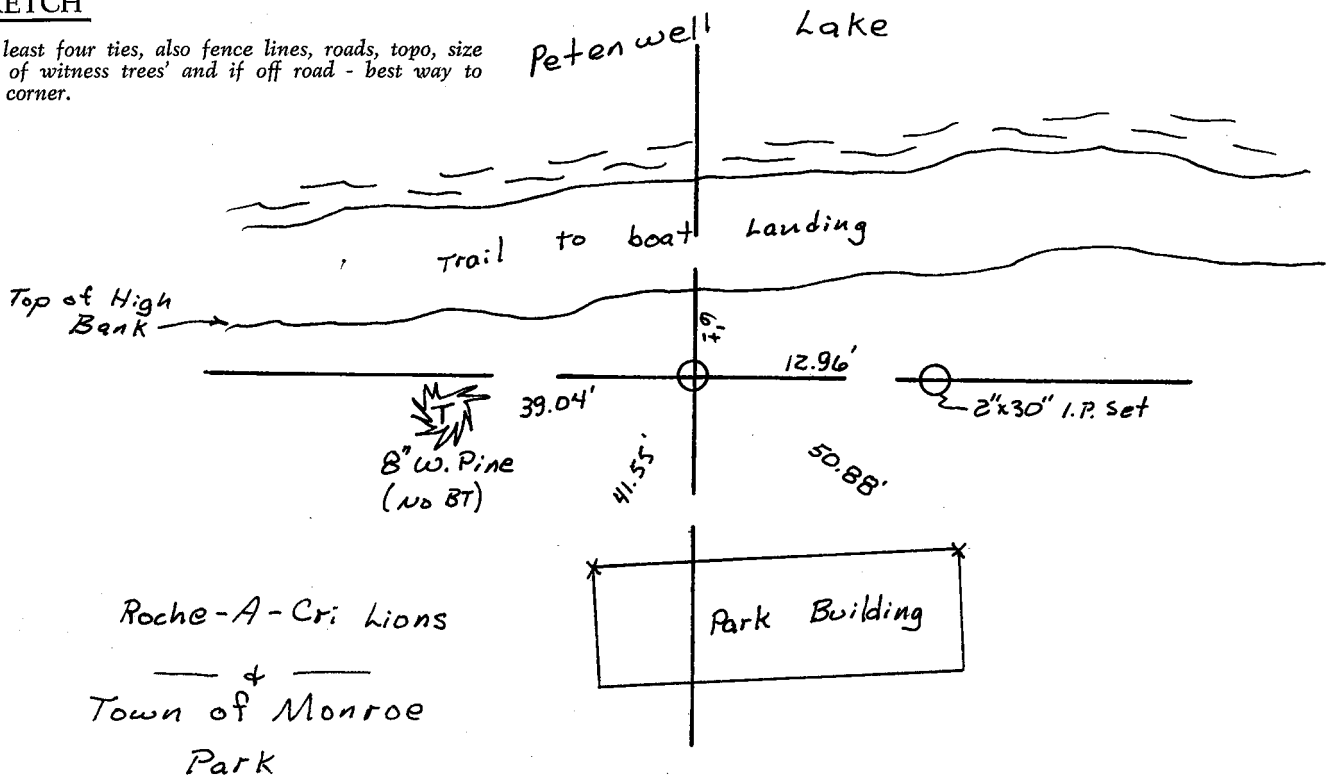 least four ties, also fence lines, roads, topo, size
of witness trees' and if off road - best way to
corner.
Petenwell Lake
Trail to boat Landing
Top of High
Bank
12.96'
39.04'
2"x30" I.P. Set
T
8" W. Pine
(No BT)
41.55'
50.88'
Park Building
Roche-A-Cri Lions
&
Town of Monroe
Park